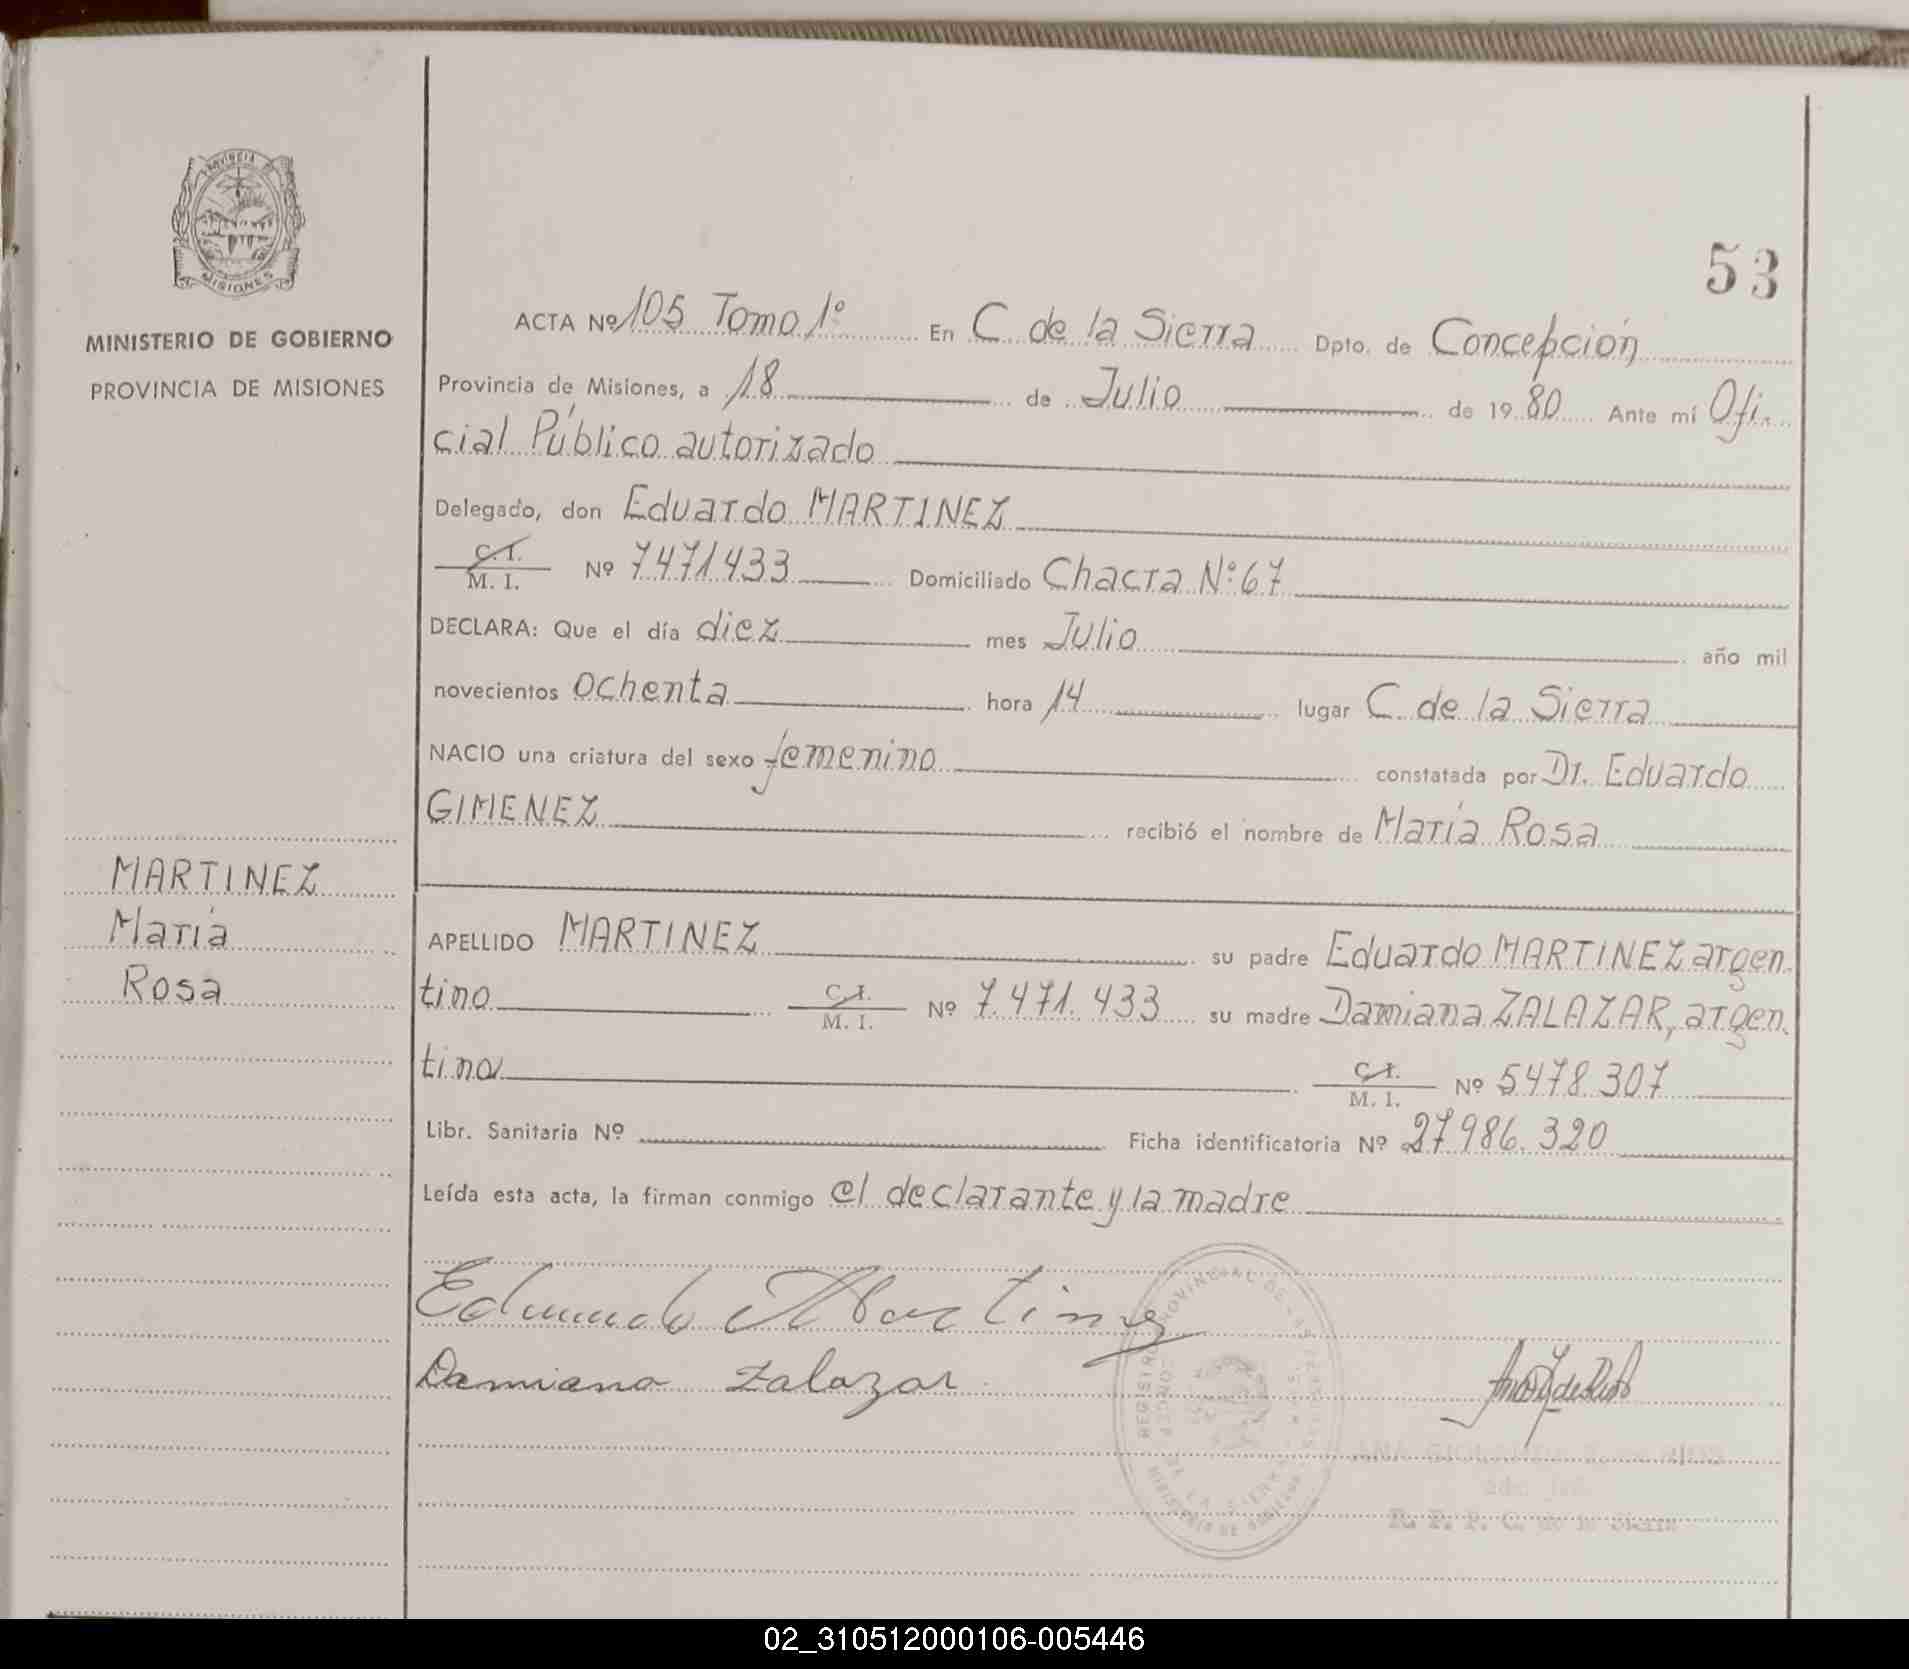 PROVINCIA DE
MISIONES
MINISTERIO DE GOBIERNO
PROVINCIA DE MISIONES
53
ACTA Nº 105 Tomo 1º En C. de la Sierra Dpto. de Concepción
Provincia de Misiones, a 18 de Julio de 19 80 Ante mí Ofi.
cial Público autorizado
Delegado, don Eduardo MARTINEZ
C. I.
M. I. Nº 7471433 Domiciliado Chacra Nº 67
DECLARA: Que el día diez mes Julio año mil
novecientos ochenta hora 14 lugar C. de la Sierra
NACIO una criatura del sexo femenino constatada por Dr. Eduardo
GIMENEZ recibió el nombre de María Rosa
MARTINEZ
María
Rosa
APELLIDO MARTINEZ su padre Eduardo MARTINEZ argen.
tino C. I. M. I. Nº 7.471.433 su madre Damiana ZALAZAR, argen.
tina C. I. M. I. Nº 5478.307
Libr. Sanitaria Nº Ficha identificatoria Nº 27986.320
Leída esta acta, la firman conmigo el declarante y la madre
Eduardo Martinez
Damiana Zalazar
REGISTRO PROVINCIAL DE LAS
DE LA SIERRA
MINISTERIO DE GOBIERNO
R. P. P. C. de la Sierra
02_310512000106-005446